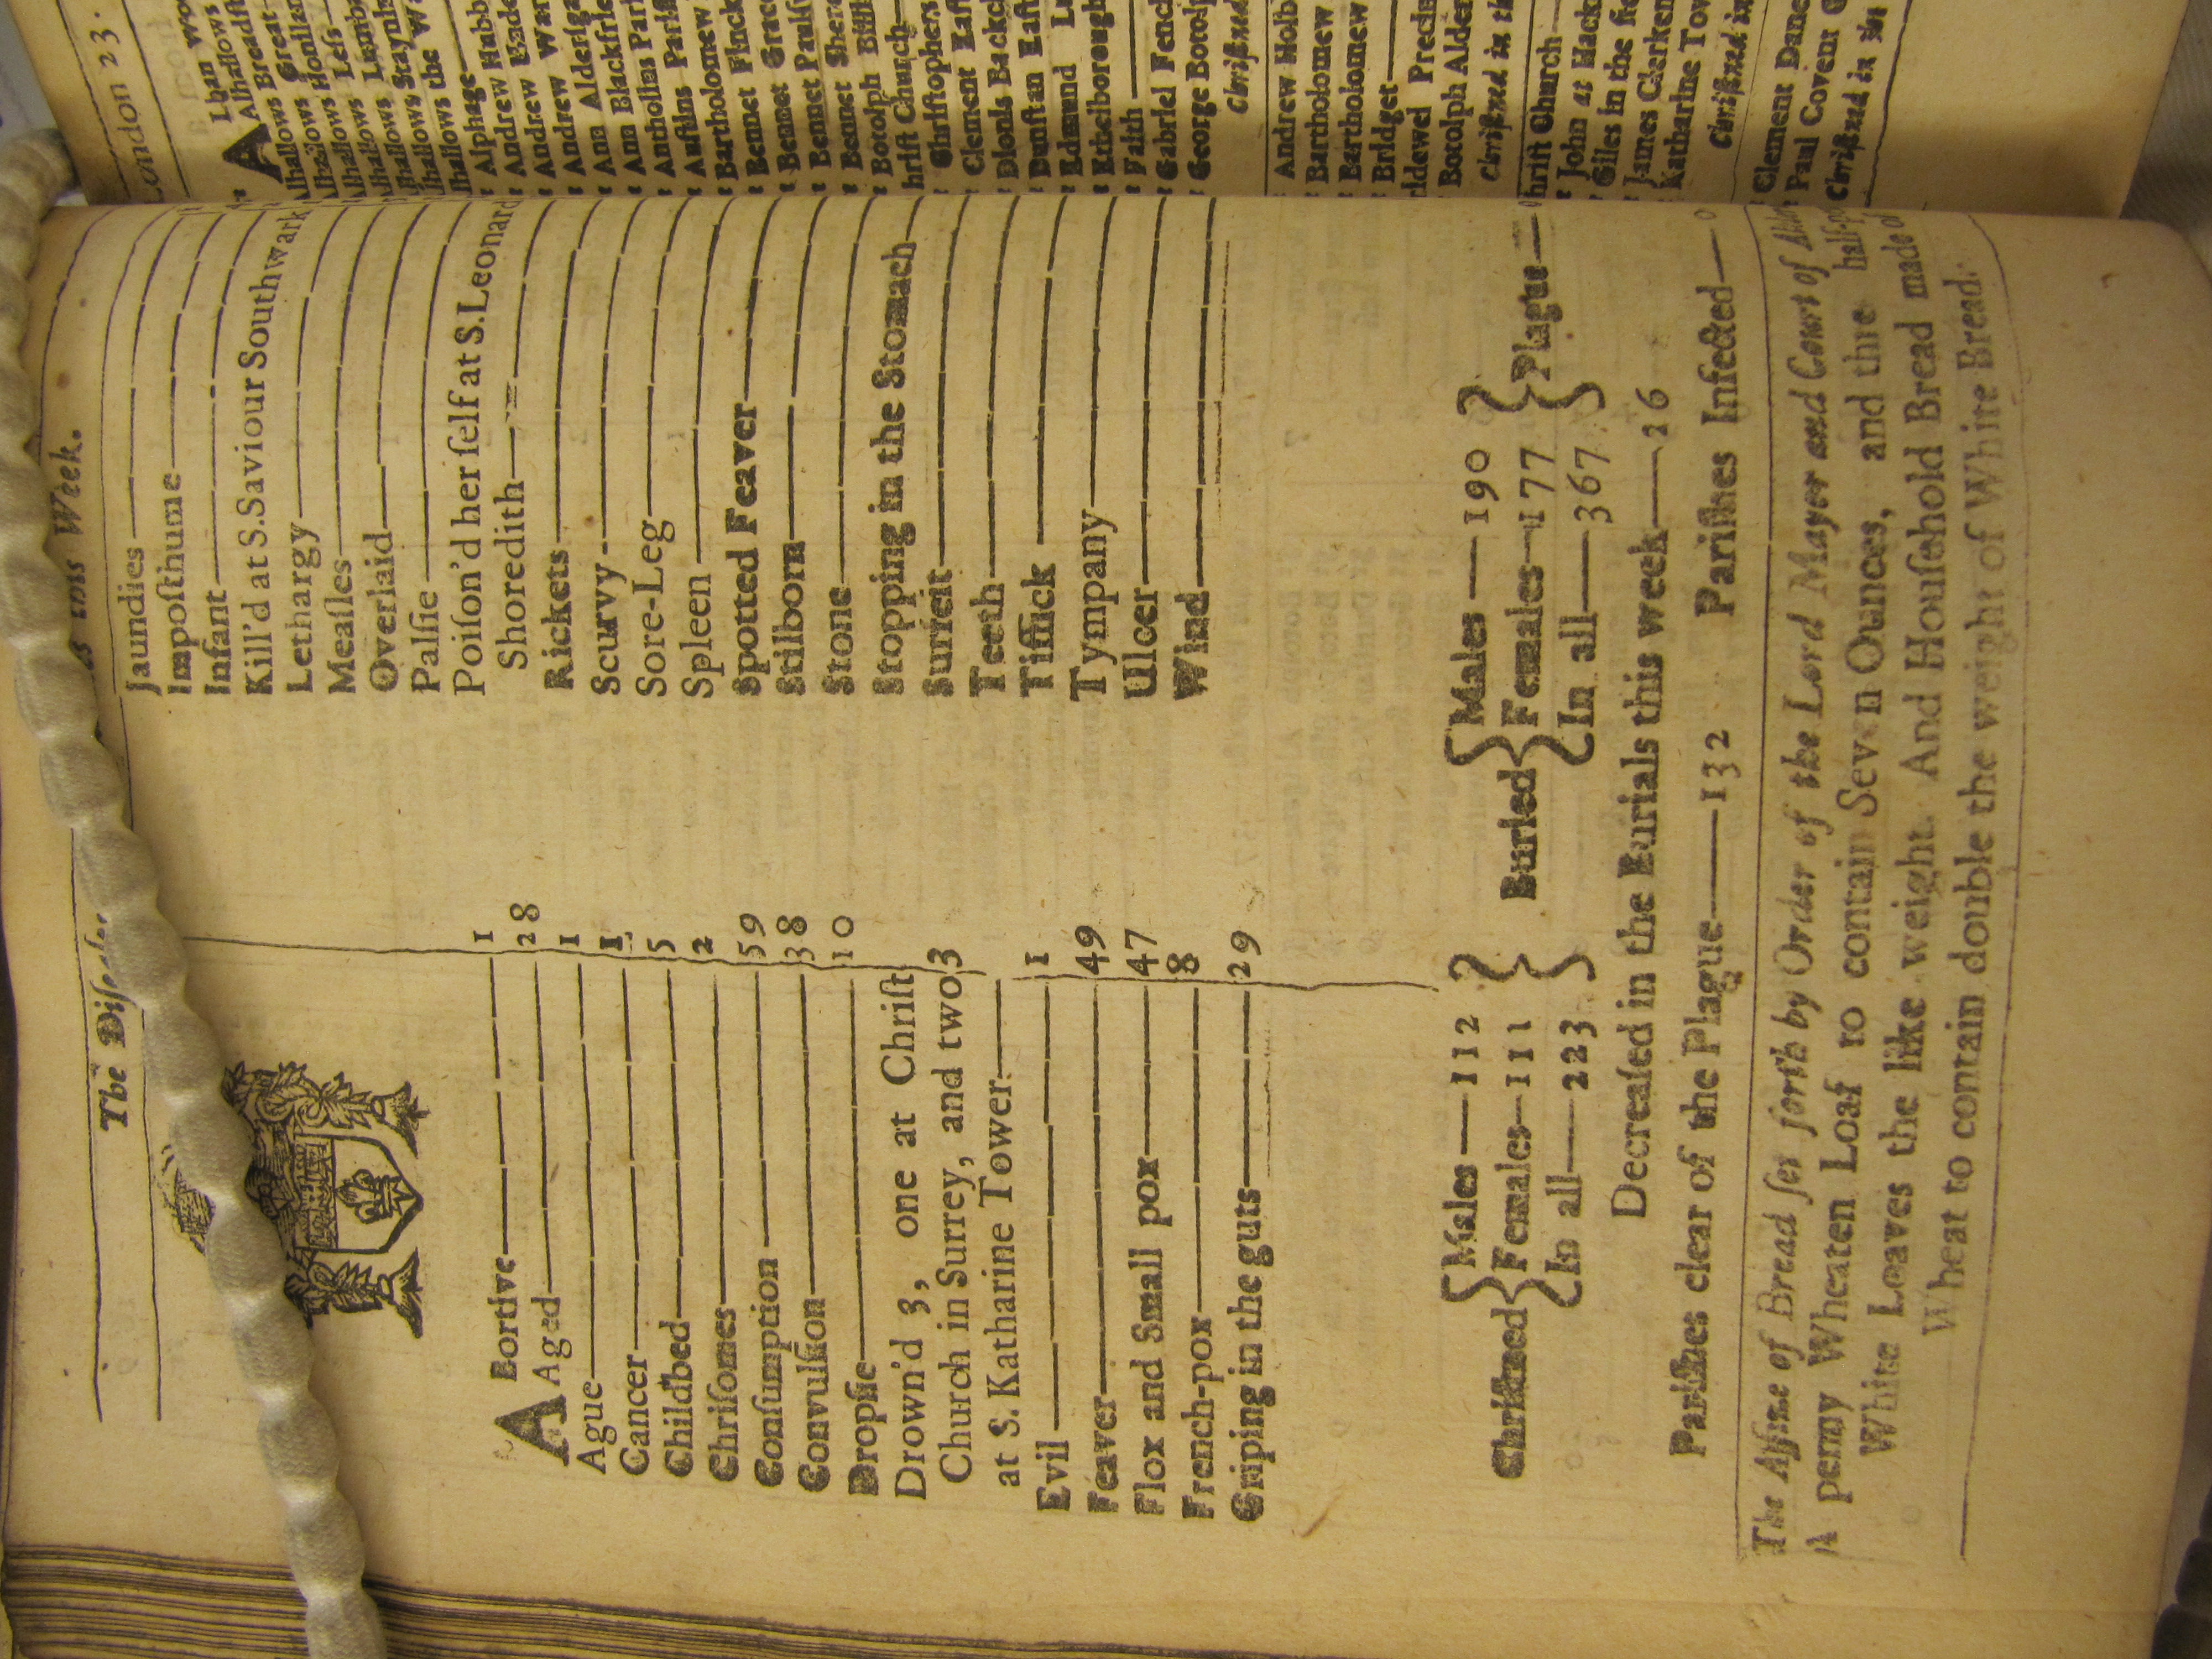 The
Week.
Abortive 1
Aged 28
Ague 1
Cancer 1
Childbed 5
Chriſomes 2
Conſumption 59
Convulſion 38
Dropſie 10
Drown'd 3, one at Chriſt
Church in Surrey, and two 3
at S. Katharine Tower.
Evil 1
Feaver 49
Flox and Small pox 47
French-pox 8
Griping in the guts 29
Jaundies
Impoſthume
Infant
Kill'd at S. Saviour Southwark
Lethargy
Meaſles
Overlaid
Palſie
Poiſon'd her ſelf at S. Leonard
Shoreditch
Rickets
Scurvy
Sore-Leg
Spleen
Spotted Feaver
Stilborn
Stone
Stopping in the Stomach
Surfeit
Teeth
Tiſſick
Tympany
Ulcer
Wind
Chriſtned { Males 112
Females 111
In all 223 }
Buried { Males 190
Females 177
In all 367 } Plague 0
Decreaſed in the Burials this week 26
Pariſhes clear of the Plague 132 Pariſhes Infected 0
The Aſſize of Bread ſet forth by Order of the Lord Mayer and Court of
A penny Wheaten Loaf to contain Seven Ounces, and three half-
White Loaves the like weight. And Houſehold Bread made of
Wheat to contain double the weight of White Bread.
London 23.
Alban
Alhallows
Alhallows Great
Alhallows Honilan
Alhallows Leſs
Alhallows Lumba
Alhallows Stayn
Alhallows the Wa
Alphage
Andrew Hubb
Andrew
Andrew War
Ann Alderſga
Ann Blackfrie
Antholins Pari
Auſtins Pariſ
Bartholomew
Bennet Finck
Bennet Grac
Bennet Paulſ
Bennet Sher
Botolph Billi
Chriſt Church
Chriſtophers
Clement Eaſt
Dionis Backch
Dunſtan Eaſt
Edmund L
Ethelborough
Faith
Gabriel Fenc
George Botolp
Chriſtned
Andrew Holb
Bartholomew
Bartholomew
Bridget
Bridewel Preci
Botolph Alder
Chriſtned in th
Chriſt Church
John at Hack
Giles in the fie
James Clerken
Katharine Tow
Chriſtned in
Clement Dane
Paul Covent G
Chriſtned in the